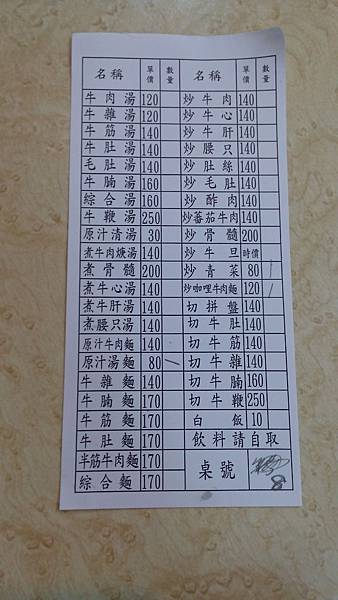 名稱 單價 數量 名稱 單價 數量
牛肉湯 120 炒牛肉 140
牛雜湯 120 炒牛心 140
牛筋湯 140 炒牛肝 140
牛肚湯 140 炒腰只 140
毛肚湯 140 炒肚絲 140
牛腩湯 160 炒毛肚 140
綜合湯 160 炒酢肉 140
牛鞭湯 250 炒蕃茄牛肉 140
原汁清湯 30 炒骨髓 200
煮牛肉焿湯 140 炒牛旦 時價
煮骨髓 200 炒青菜 80 /
煮牛心湯 140 炒咖哩牛肉麵 120 /
煮牛肝湯 140 切拼盤 140
煮腰只湯 140 切牛肚 140
原汁牛肉麵 140 切牛筋 140
原汁湯麵 80 切牛雜 140
牛雜麵 140 切牛腩 160
牛腩麵 170 切牛鞭 250
牛筋麵 170 白飯 10
牛肚麵 170 飲料請自取
半筋牛肉麵 170 桌號 8
綜合麵 170